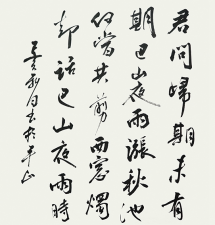 君問歸期未有
期巴山夜雨漲秋池
何當共剪西窗燭
却話巴山夜雨時
书於平山